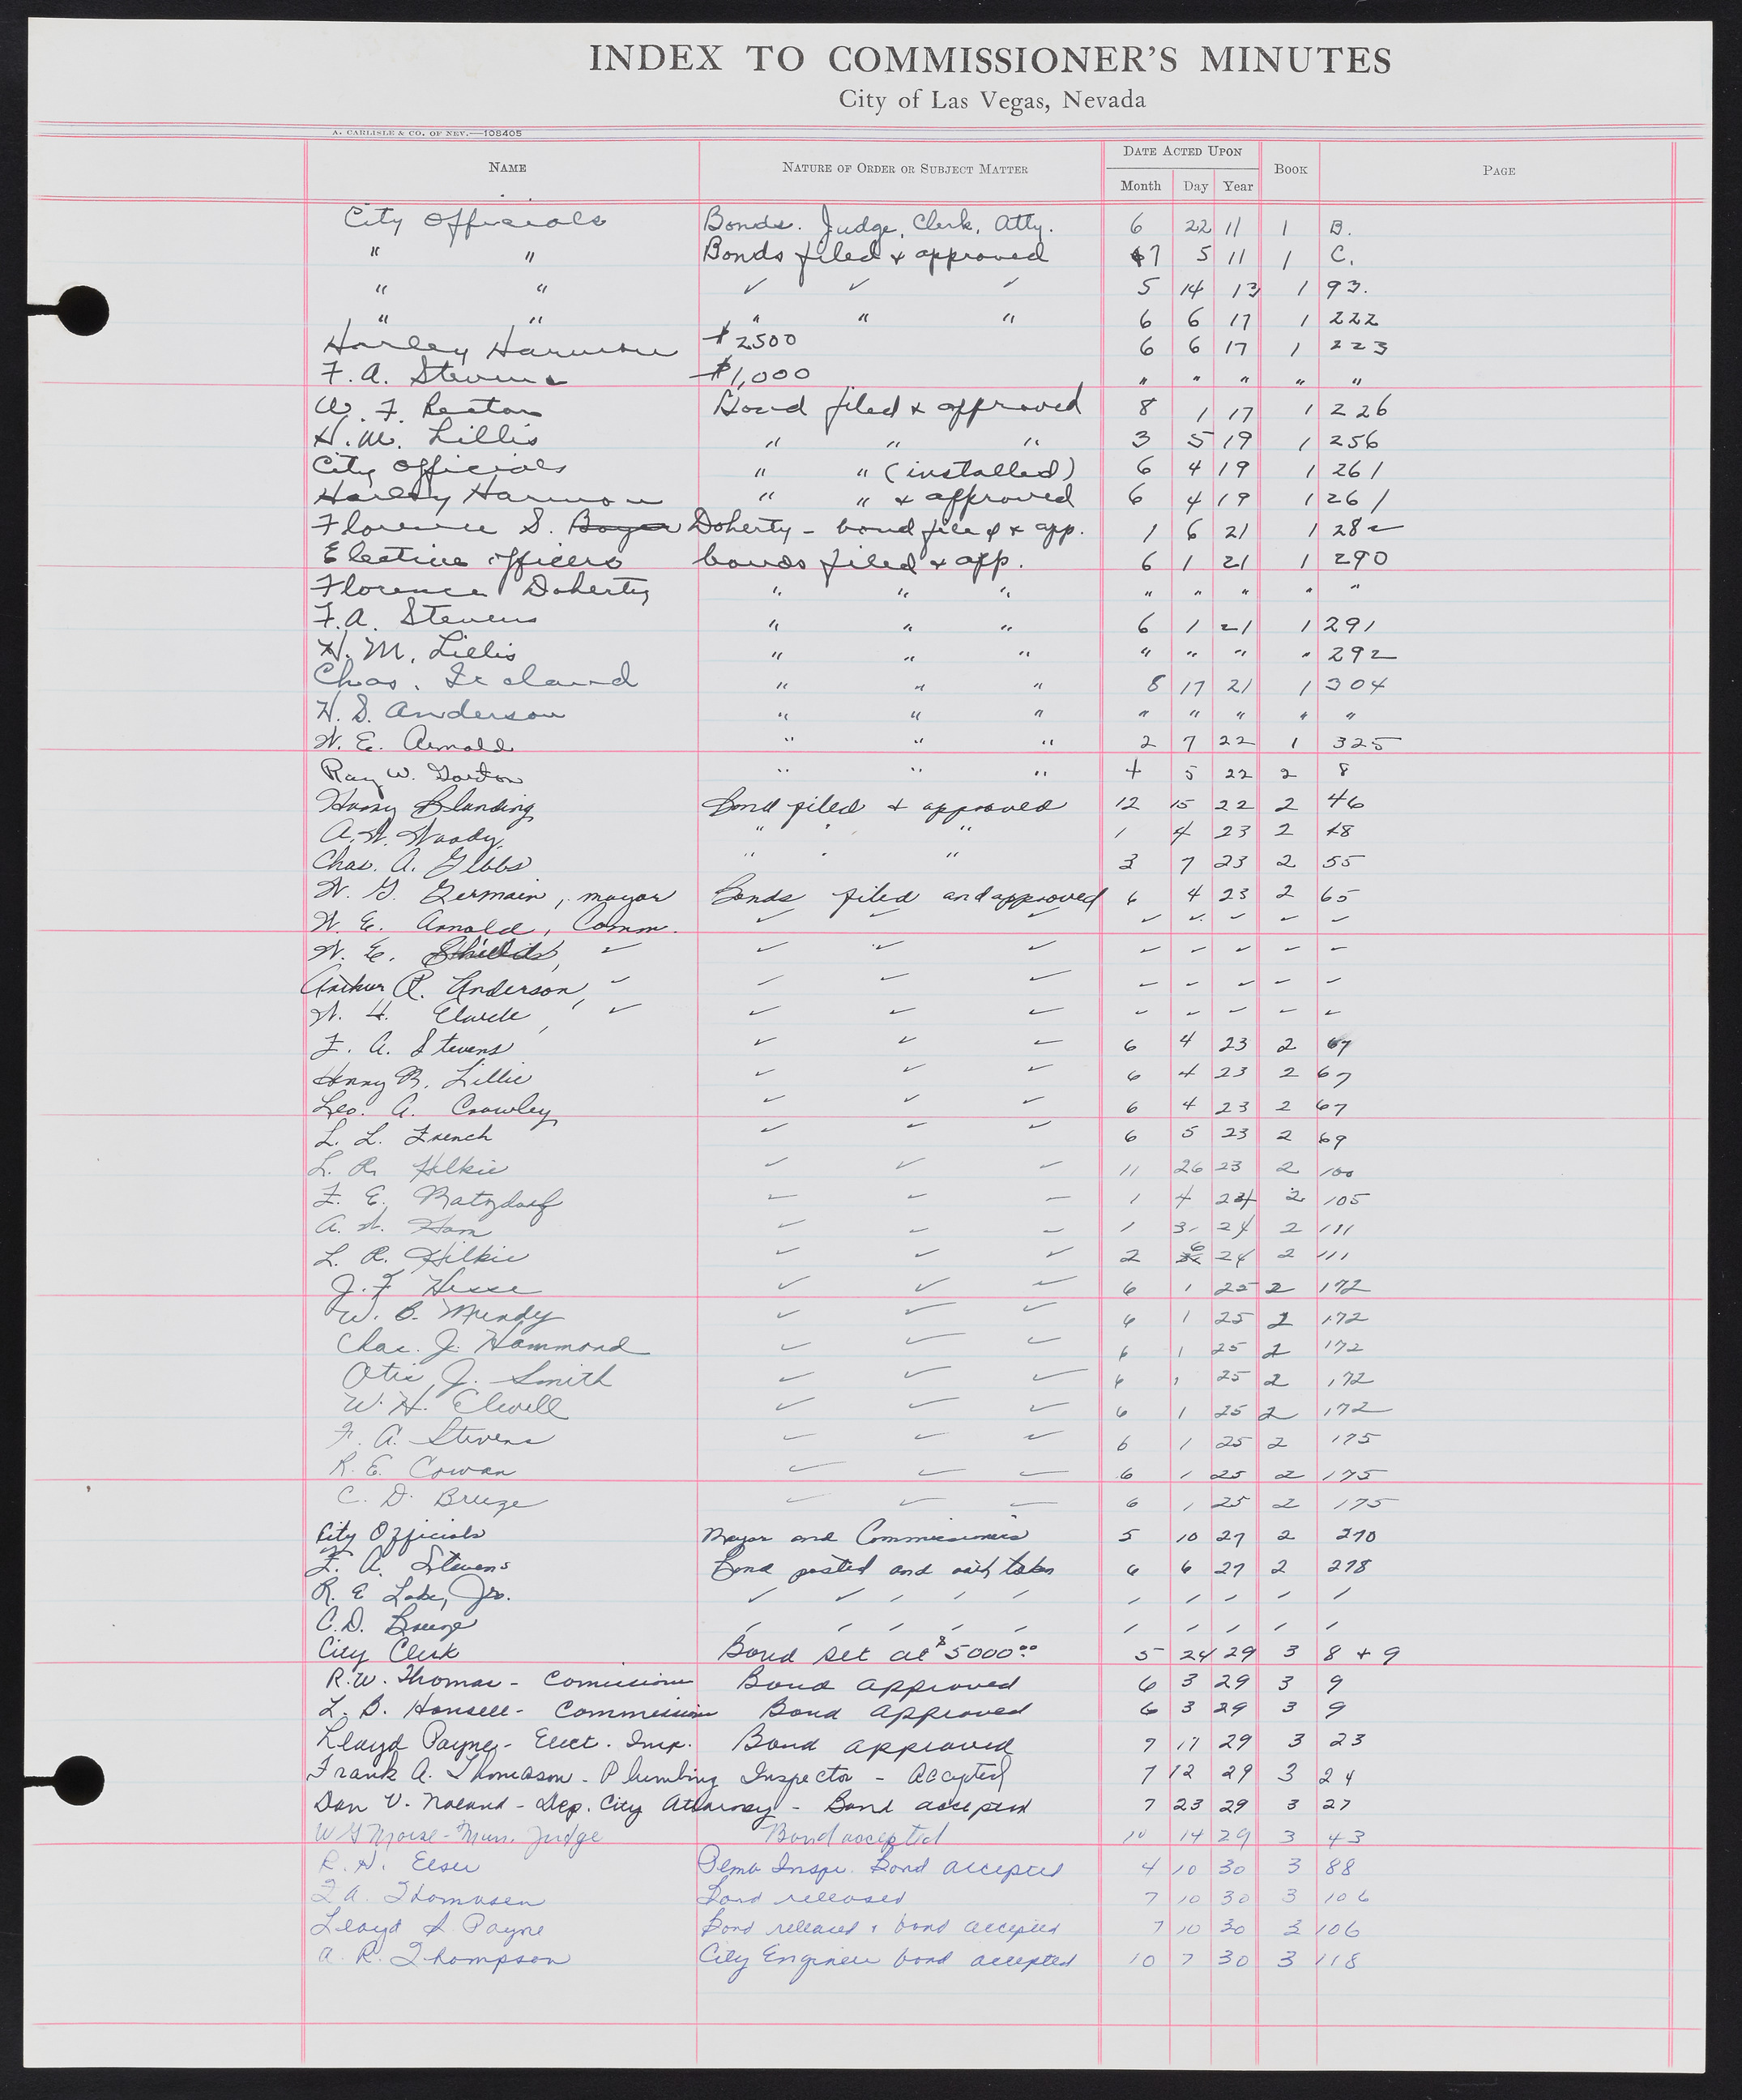 INDEX TO COMMISSIONER'S MINUTES
City of Las Vegas, Nevada
A. CARLISLE & CO. OF NEV.—108405
NAME NATURE OF ORDER OR SUBJECT MATTER DATE ACTED UPON Month Day Year BOOK PAGE
City Officials Bonds. Judge, Clerk, Atty. 6 22 11 1 B.
" " Bonds filed & approved 7 5 11 1 C.
" " ✓ ✓ ✓ 5 14 13 1 93.
" " " " " 6 6 17 1 222
Harley Harmon $2500 6 6 17 1 223
F. A. Stevens $1,000 " " " " "
W. F. Bond filed & approved 8 1 17 1 226
H. M. Lillis " " " 3 5 19 1 256
City Officials " " (installed) 6 4 19 1 261
Harley Harmon " " & approved 6 4 19 1 261
Florence S. Boyer Doherty - bond filed & app. 1 6 21 1 282
Elective officers bonds filed & app. 6 1 21 1 290
Florence Doherty " " " " " " " "
F. A. Stevens " " " 6 1 21 1 291
H. M. Lillis " " " " " " " 292
Chas. Ireland " " " 8 17 21 1 304
H. S. Anderson " " " " " " " "
W. E. Arnold " " " 2 7 22 1 325
Ray W. " " " 4 5 22 2 8
Harry Blanding Bond filed & approved 12 15 22 2 46
A. W. Woody " " " 1 4 23 2 48
Chas. A. Gibbs " " " 3 7 23 2 55
W. G. Germain, mayor Bonds filed and approved 6 4 23 2 65
W. E. Arnold, Comm. ✓ ✓ ✓ ✓ ✓ ✓ ✓ ✓
W. E. Shields, ✓ ✓ ✓ ✓ ✓ ✓ ✓ ✓ ✓
Arthur R. Anderson, ✓ ✓ ✓ ✓ ✓ ✓ ✓ ✓ ✓
W. H. Elwell, ✓ ✓ ✓ ✓ ✓ ✓ ✓ ✓ ✓
F. A. Stevens ✓ ✓ ✓ 6 4 23 2 67
B. Lillis ✓ ✓ ✓ 6 4 23 2 67
Leo. A. Crowley ✓ ✓ ✓ 6 4 23 2 67
L. L. French ✓ ✓ ✓ 6 5 23 2 69
L. R. Hilkie ✓ ✓ ✓ 11 26 23 2 100
F. E. Matzdorf ✓ ✓ ✓ 1 4 24 2 105
A. W. Ham ✓ ✓ ✓ 1 24 2 111
L. R. Hilkie ✓ ✓ ✓ 2 6 24 2 111
J. F. Hesse ✓ ✓ ✓ 6 1 25 2 172
W. B. Mundy ✓ ✓ ✓ 6 1 25 2 172
Chas. J. Hammond ✓ ✓ ✓ 6 1 25 2 172
Otis J. Smith ✓ ✓ ✓ 6 1 25 2 172
W. H. Elwell ✓ ✓ ✓ 6 1 25 2 172
F. A. Stevens ✓ ✓ ✓ 6 1 25 2 175
R. E. Cowan ✓ ✓ ✓ 6 1 25 2 175
C. D. Breeze ✓ ✓ ✓ 6 1 25 2 175
City Officials Mayor and Commissioners 5 10 27 2 270
F. A. Stevens Bond posted and oath taken 6 6 27 2 278
R. E. Lake, Jr. ✓ ✓ ✓ ✓ ✓ ✓ ✓ ✓ ✓ ✓
C. D. Breeze ✓ ✓ ✓ ✓ ✓ ✓ ✓ ✓ ✓ ✓
City Clerk Bond set at $5000.00 5 24 29 3 8 + 9
R. W. Thomas - Comissioner Bond approved 6 3 29 3 9
L. B. Hansell - Commissioner Bond approved 6 3 29 3 9
Lloyd Payne - Elect. Insp. Bond approved 7 17 29 3 23
Frank A. Thomasson - Plumbing Inspector - Accepted 7 12 29 3 24
Dan V. Noland - Dep. City Attorney - Bond accepted 7 23 29 3 27
W G Morse - Mun. Judge Bond accepted 10 14 29 3 43
R. H. Elser Plmb Inspr. Bond accepted 4 10 30 3 88
F. A. Thomasen Bond released 7 10 30 3 106
Lloyd S. Payne Bond released & bond accepted 7 10 30 3 106
A. R. Thompson City Engineer bond accepted 10 7 30 3 118